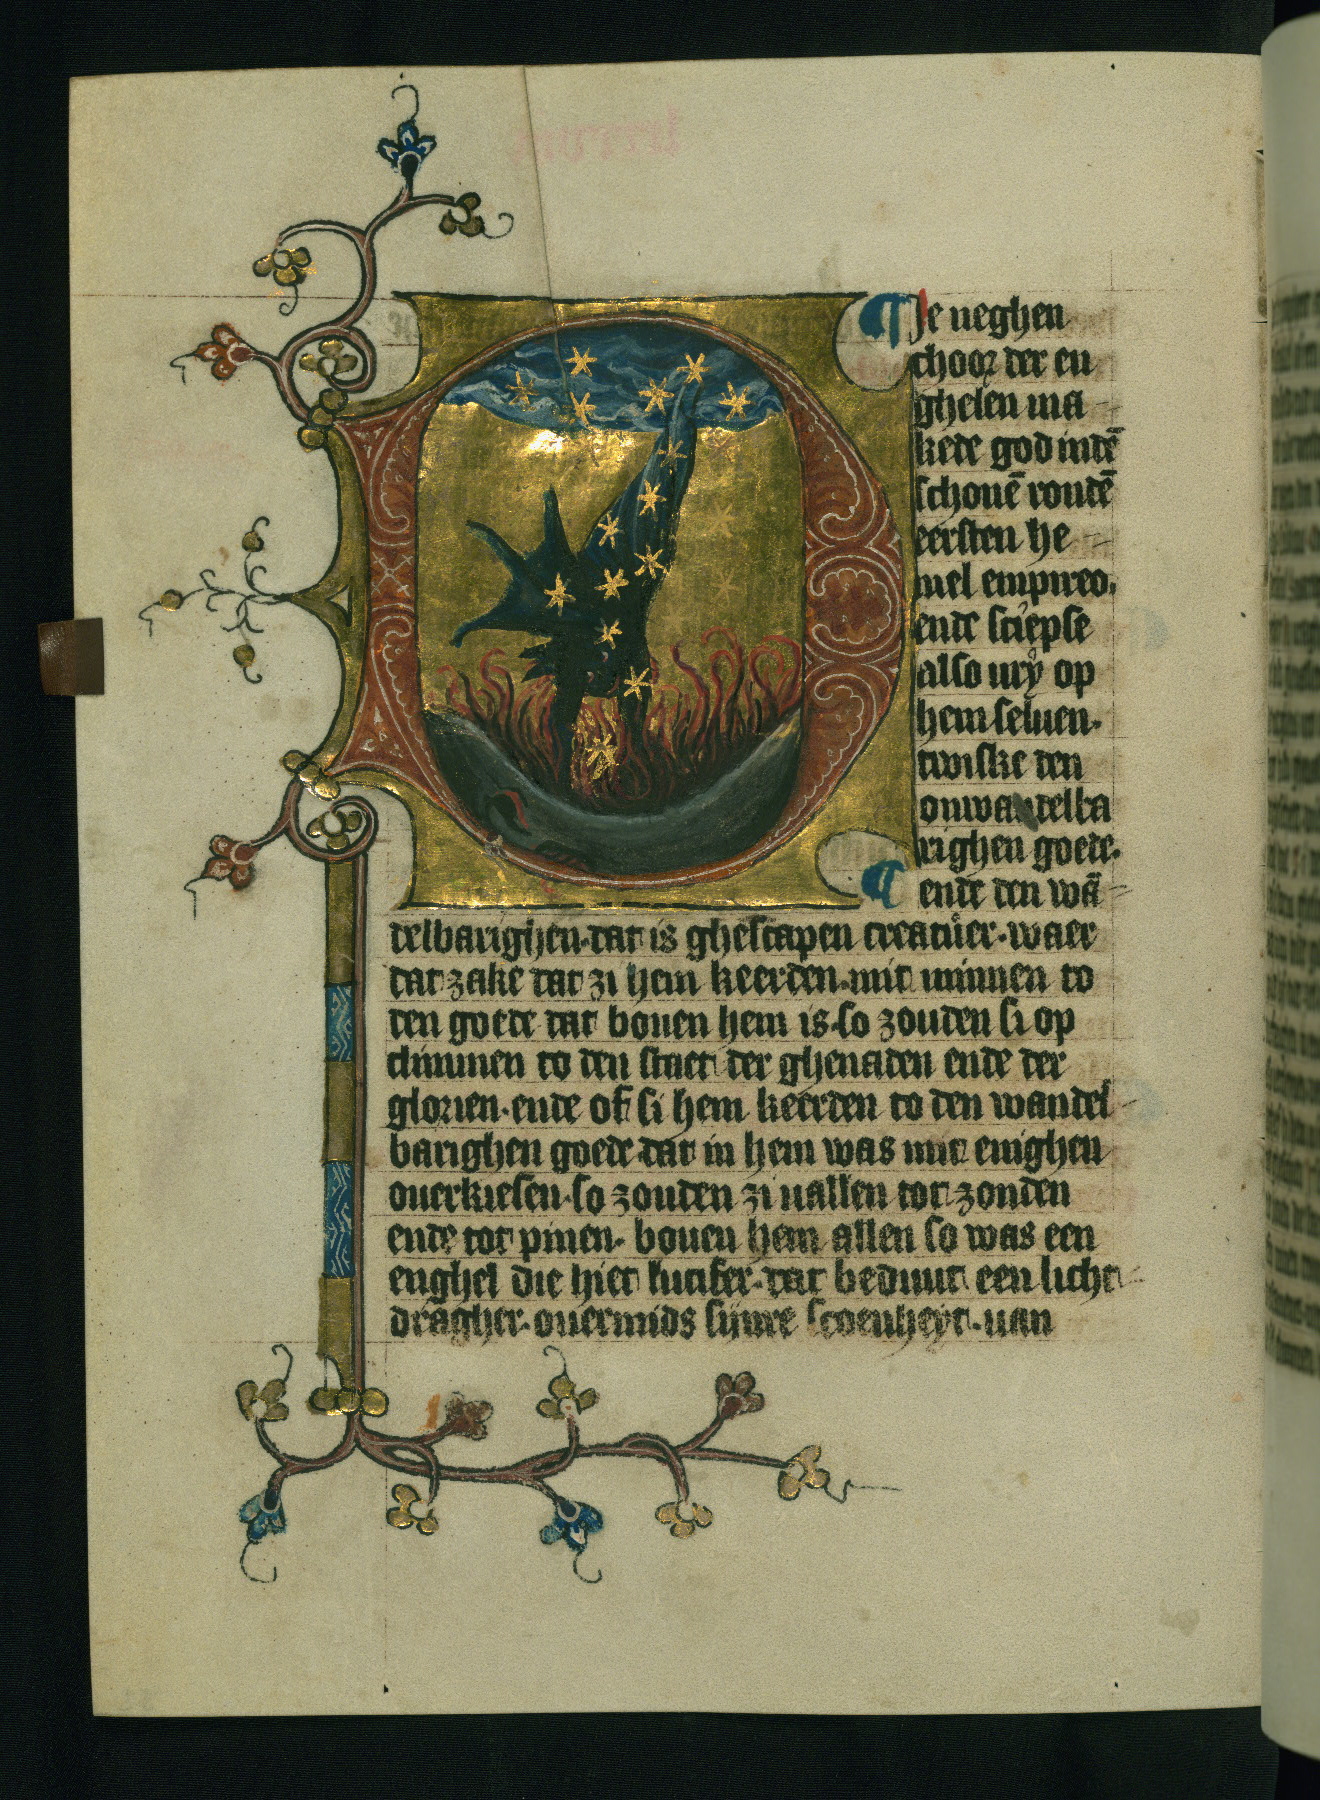 ¶ Je neghen
choor der en
ghelen ma
kede god indē
schonē rondē
eersten he
mel empireo.
ende sciepse
also vry op
hem seluen.
twiske den
onwandelba
righen goede.
¶ ende den wā
delbarighen. dat is ghescapen creatuer. waer
dat zake dat zi hem keerden. mit minnen to
den goede dat bouen hem is. so zouden si op
climmen to den staet der ghenaden ende der
glorien. ende of si hem keerden to den wandel
barighen goede dat in hem was mit enighen
ouerkiesen. so zouden zi uallen tot zonden
ende tot pinen. bouen hem allen so was een
enghel die hiet lucifer. dat beduut een licht
dragher. ouermids sijnre scoenheyt. uan